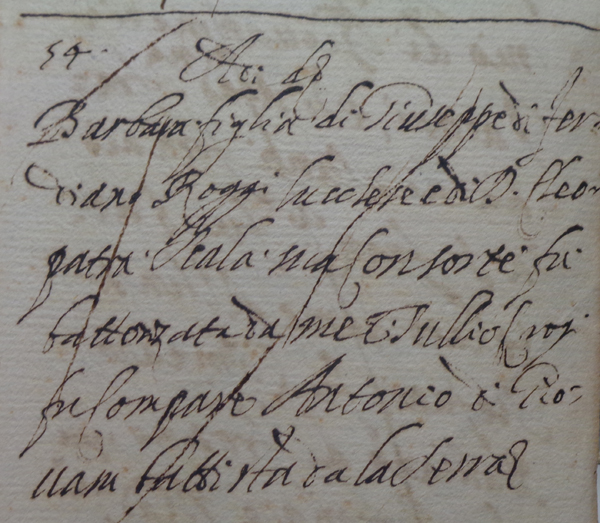 54. Adi d°
Barbara figlia di Giuseppe di Fer-
diano Roggi lucchese e di D. Cleo-
patra Scala sua Consorte fu
battezzata da me T. Tullio Crog
fu Compare Antonio di Gio-
uam batista da la Serra